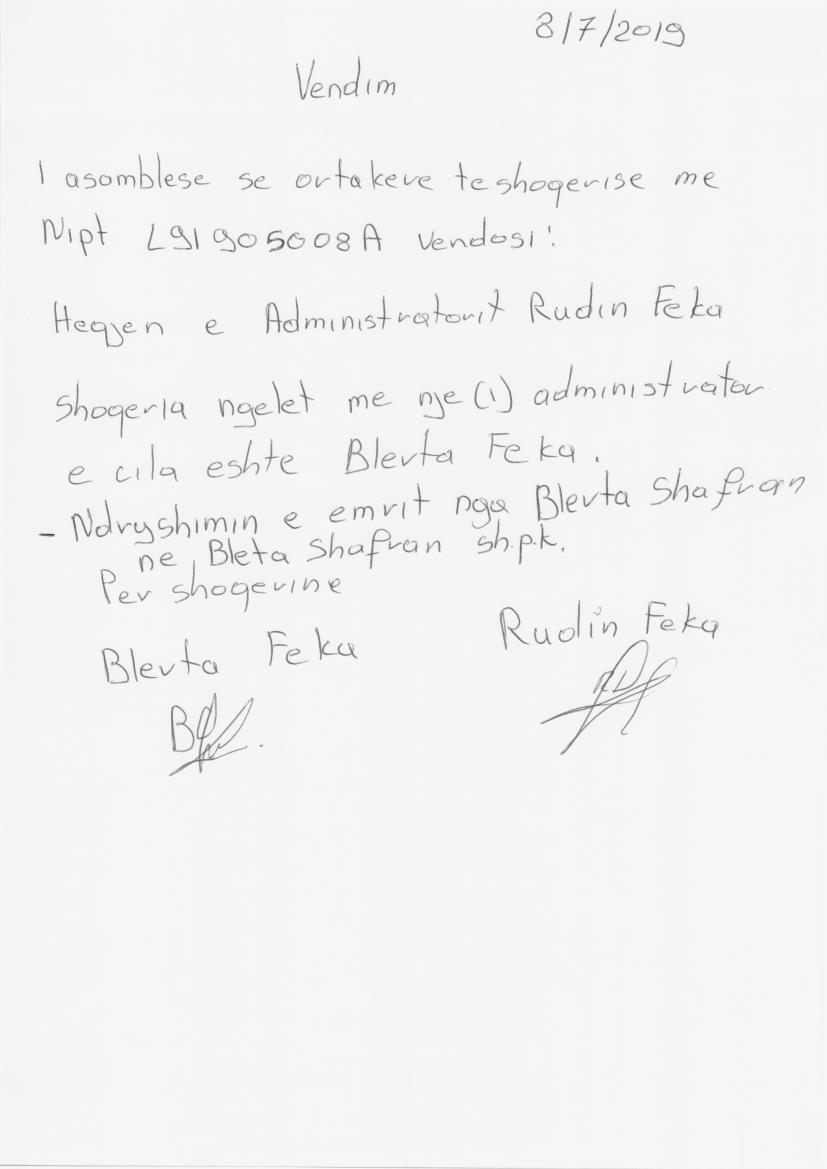 8/7/2019
Vendim
I asamblese se ortakeve te shoqerise me
Nipt L91905008A vendosi:
Heqjen e Administratorit Rudin Feka
shoqeria ngelet me nje (1) administrator
e cila eshte Blerta Feka.
- Ndryshimin e emrit nga Blerta Shafran
ne Bleta Shafran sh.p.k.
Per shoqerine
Blerta Feka Rudin Feka